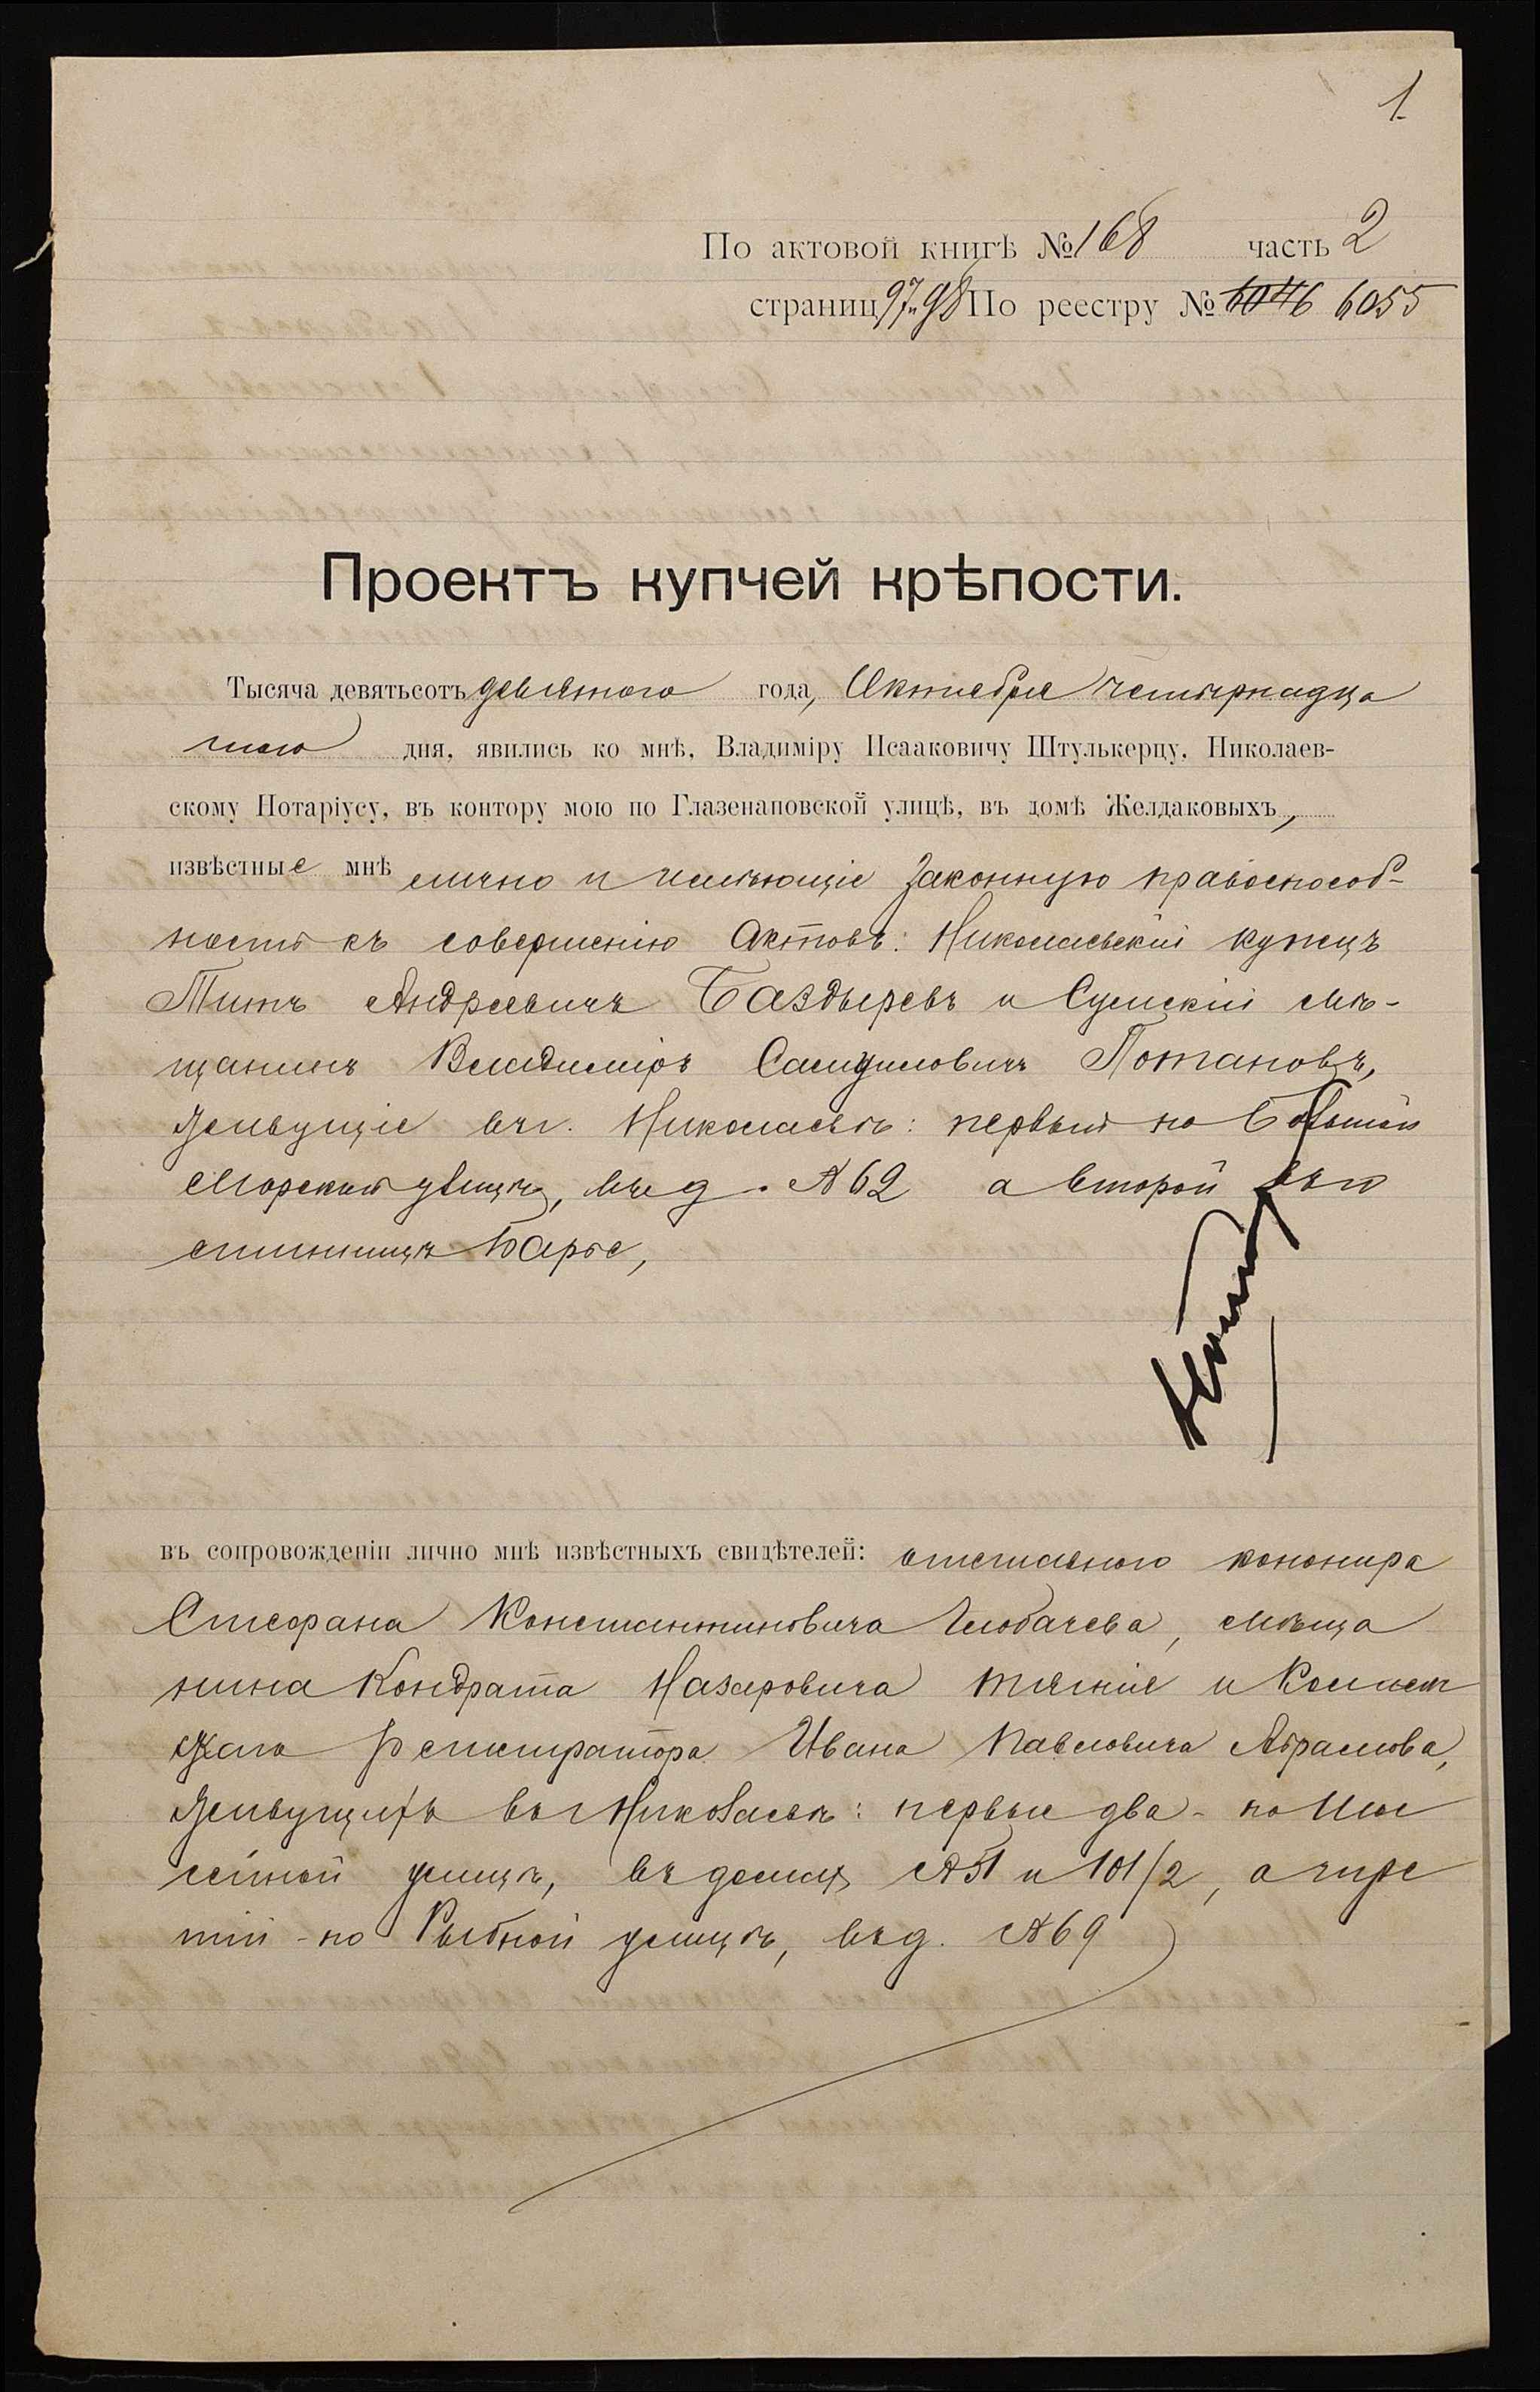 1.
По актовой книгѣ № 168 часть 2
страниц 97-98 По реестру № 6046 6055
Проектъ купчей крѣпости.
Тысяча девятьсотъ девятаго года, Октября четырнадца
таго дня, явились ко мнѣ, Владиміру Исааковичу Штулькерцу, Николаев-
скому Нотаріусу, въ контору мою по Глазенаповской улицѣ, въ домѣ Желдаковыхъ,
извѣстные мнѣ лично и имѣющіе законную правоспособ-
ность къ совершенію актовъ: Николаевскій купецъ
Титъ Андреевичъ Баздыревъ и Сумскій мѣ-
щанинъ Владиміръ Самуиловичъ Потаповъ,
живущіе въ г. Николаевѣ: первый по Большой
Морской улицѣ, въ д. № 62 а второй въ
гостинницѣ
въ сопровожденіи лично мнѣ извѣстныхъ свидѣтелей: отставного канонира
Стефана Константиновича Глобачева, мѣща
нина Кондрата Назаровича и Коллеж
скаго Регистратора Ивана Павловича Абрамова,
живущихъ въ г. Николаевѣ: первые два - по
улицѣ, въ домахъ № 51 и 101/2, а тре
тій - по Рыбной улицѣ, въ д. № 69